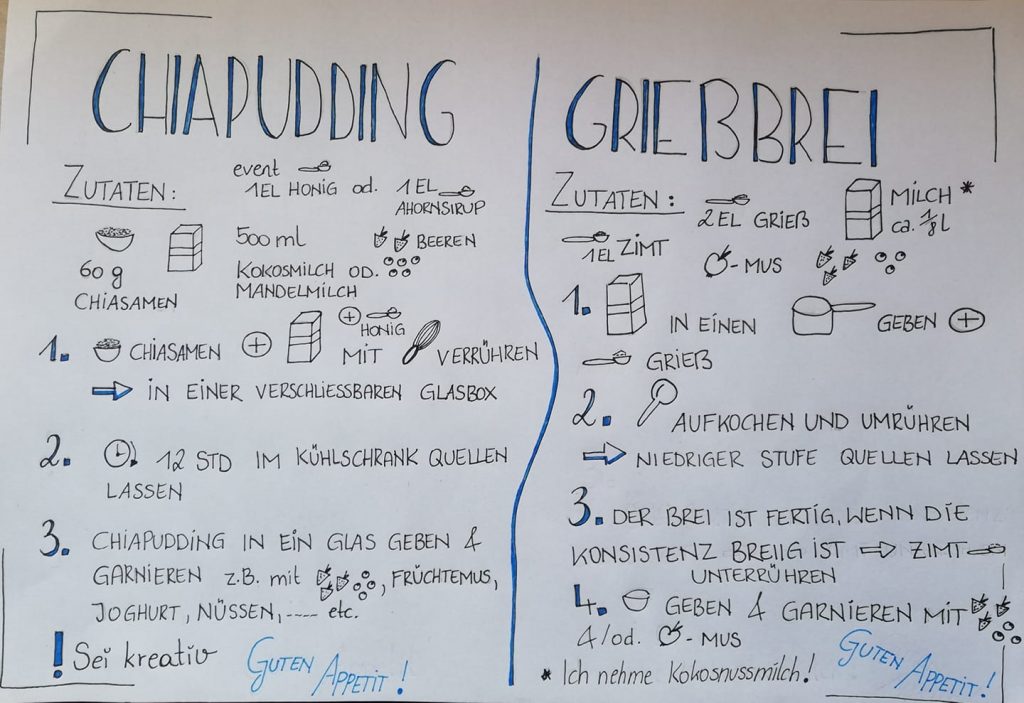 CHIAPUDDING
ZUTATEN:
event
1EL HONIG od. 1 EL
AHORNSIRUP
60 g
CHIASAMEN
500 ml
KOKOSMILCH OD.
MANDELMILCH
BEEREN
1. CHIASAMEN + + HONIG MIT VERRÜHREN
IN EINER VERSCHLIESSBAREN GLASBOX
2. 12 STD IM KÜHLSCHRANK QUELLEN
LASSEN
3. CHIAPUDDING IN EIN GLAS GEBEN &
GARNIEREN z.B. mit , FRÜCHTEMUS,
JOGHURT, NÜSSEN, ---- etc.
! Sei kreativ
GUTEN APPETIT!
GRIEẞBREI
ZUTATEN:
2 EL GRIEß
MILCH *
ca. 1/8 l
1EL ZIMT
-MUS
1. IN EINEN GEBEN +
GRIEß
2. AUFKOCHEN UND UMRÜHREN
NIEDRIGER STUFE QUELLEN LASSEN
3. DER BREI IST FERTIG, WENN DIE
KONSISTENZ BREIIG IST ZIMT
UNTERRÜHREN
4. GEBEN & GARNIEREN MIT
&/od. -MUS
* Ich nehme Kokosnussmilch!
GUTEN APPETIT!